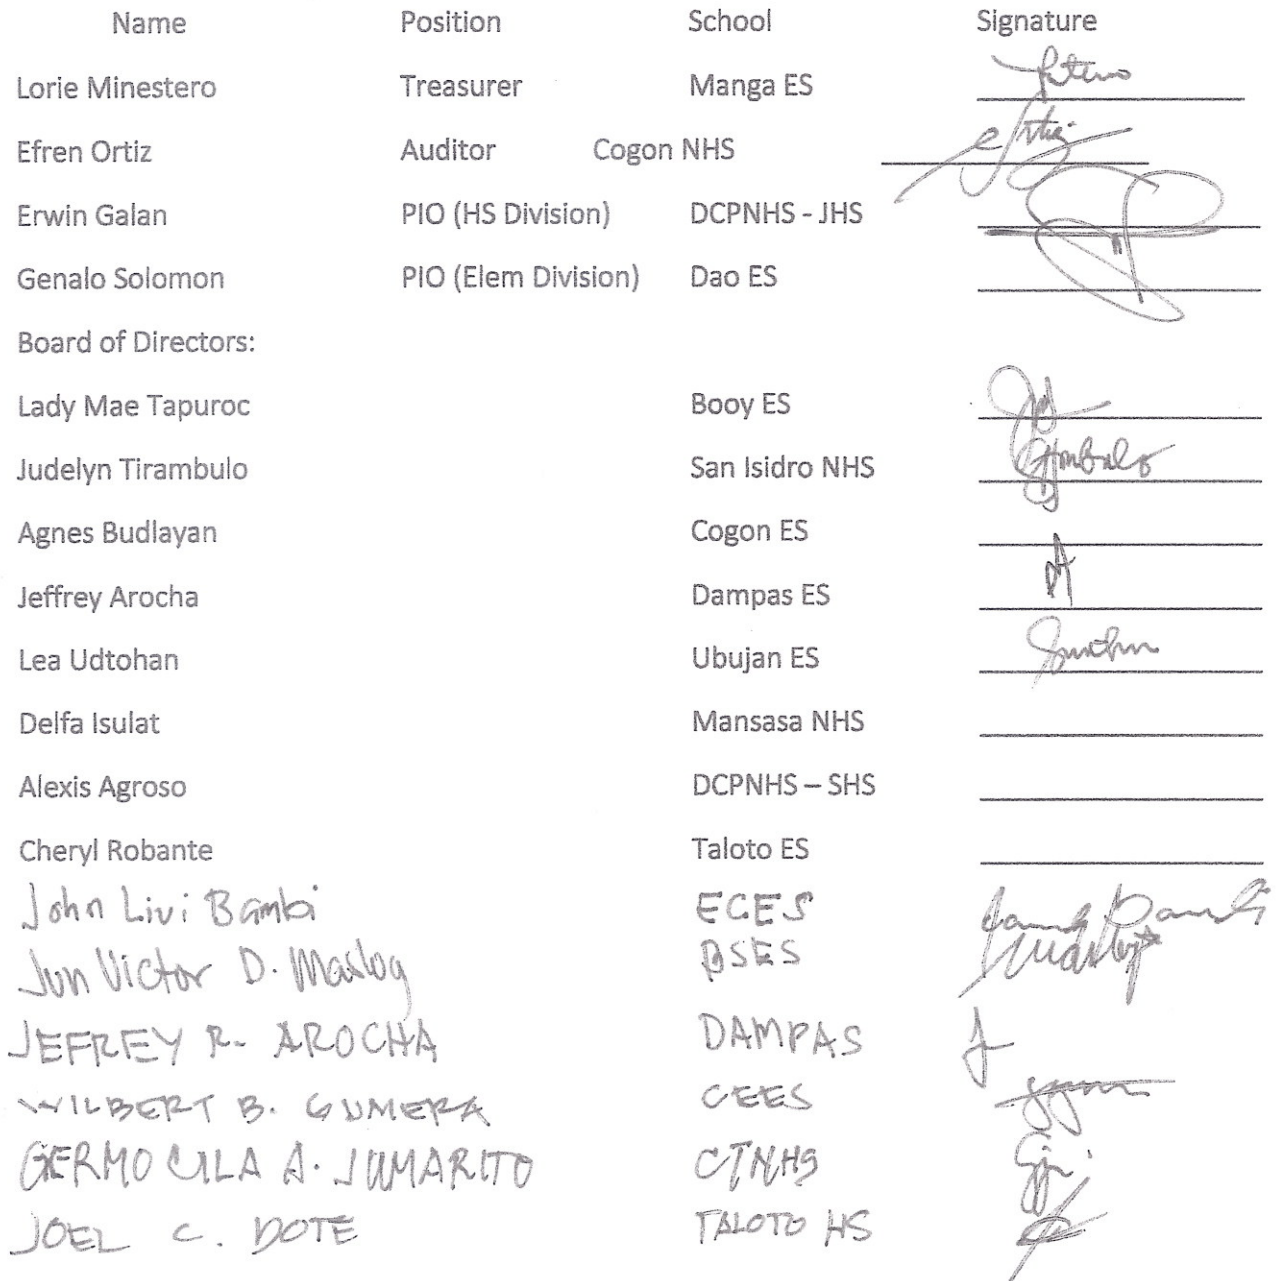 Name Position School Signature
Lorie Minestero Treasurer Manga ES
Efren Ortiz Auditor Cogon NHS
Erwin Galan PIO (HS Division) DCPNHS - JHS
Genalo Solomon PIO (Elem Division) Dao ES
Board of Directors:
Lady Mae Tapuroc Booy ES
Judelyn Tirambulo San Isidro NHS
Agnes Budlayan Cogon ES
Jeffrey Arocha Dampas ES
Lea Udtohan Ubujan ES
Delfa Isulat Mansasa NHS
Alexis Agroso DCPNHS – SHS
Cheryl Robante Taloto ES
John Livi Bambi ECES
Jun Victor D. Maslog BSES
JEFREY R. AROCHA DAMPAS
WILBERT B. GUMERA CEES
GERMO CILA A. JUMARITO CTNHS
JOEL C. DOTE TALOTO HS